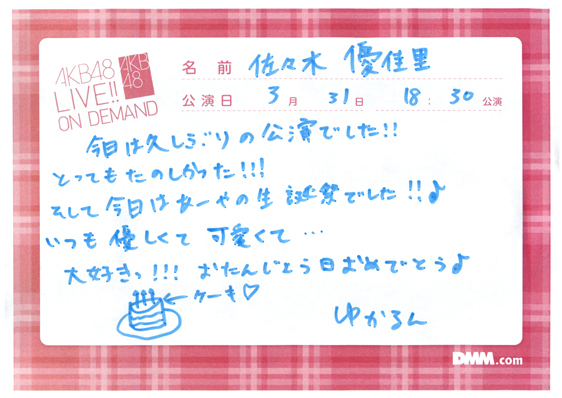 AKB48
LIVE!!
ON DEMAND
AKB
48
名前 佐々木 優佳里
公演日 3月 31日 18:30公演
今日は久しぶりの公演でした!!
とってもたのしかった!!!
そして今日はあーやの生誕祭でした!!♪
いつも優しくて 可愛くて…
大好きっ!!! おたんじょう日おめでとう♪
←ケーキ♡
ゆかるん
DMM.com